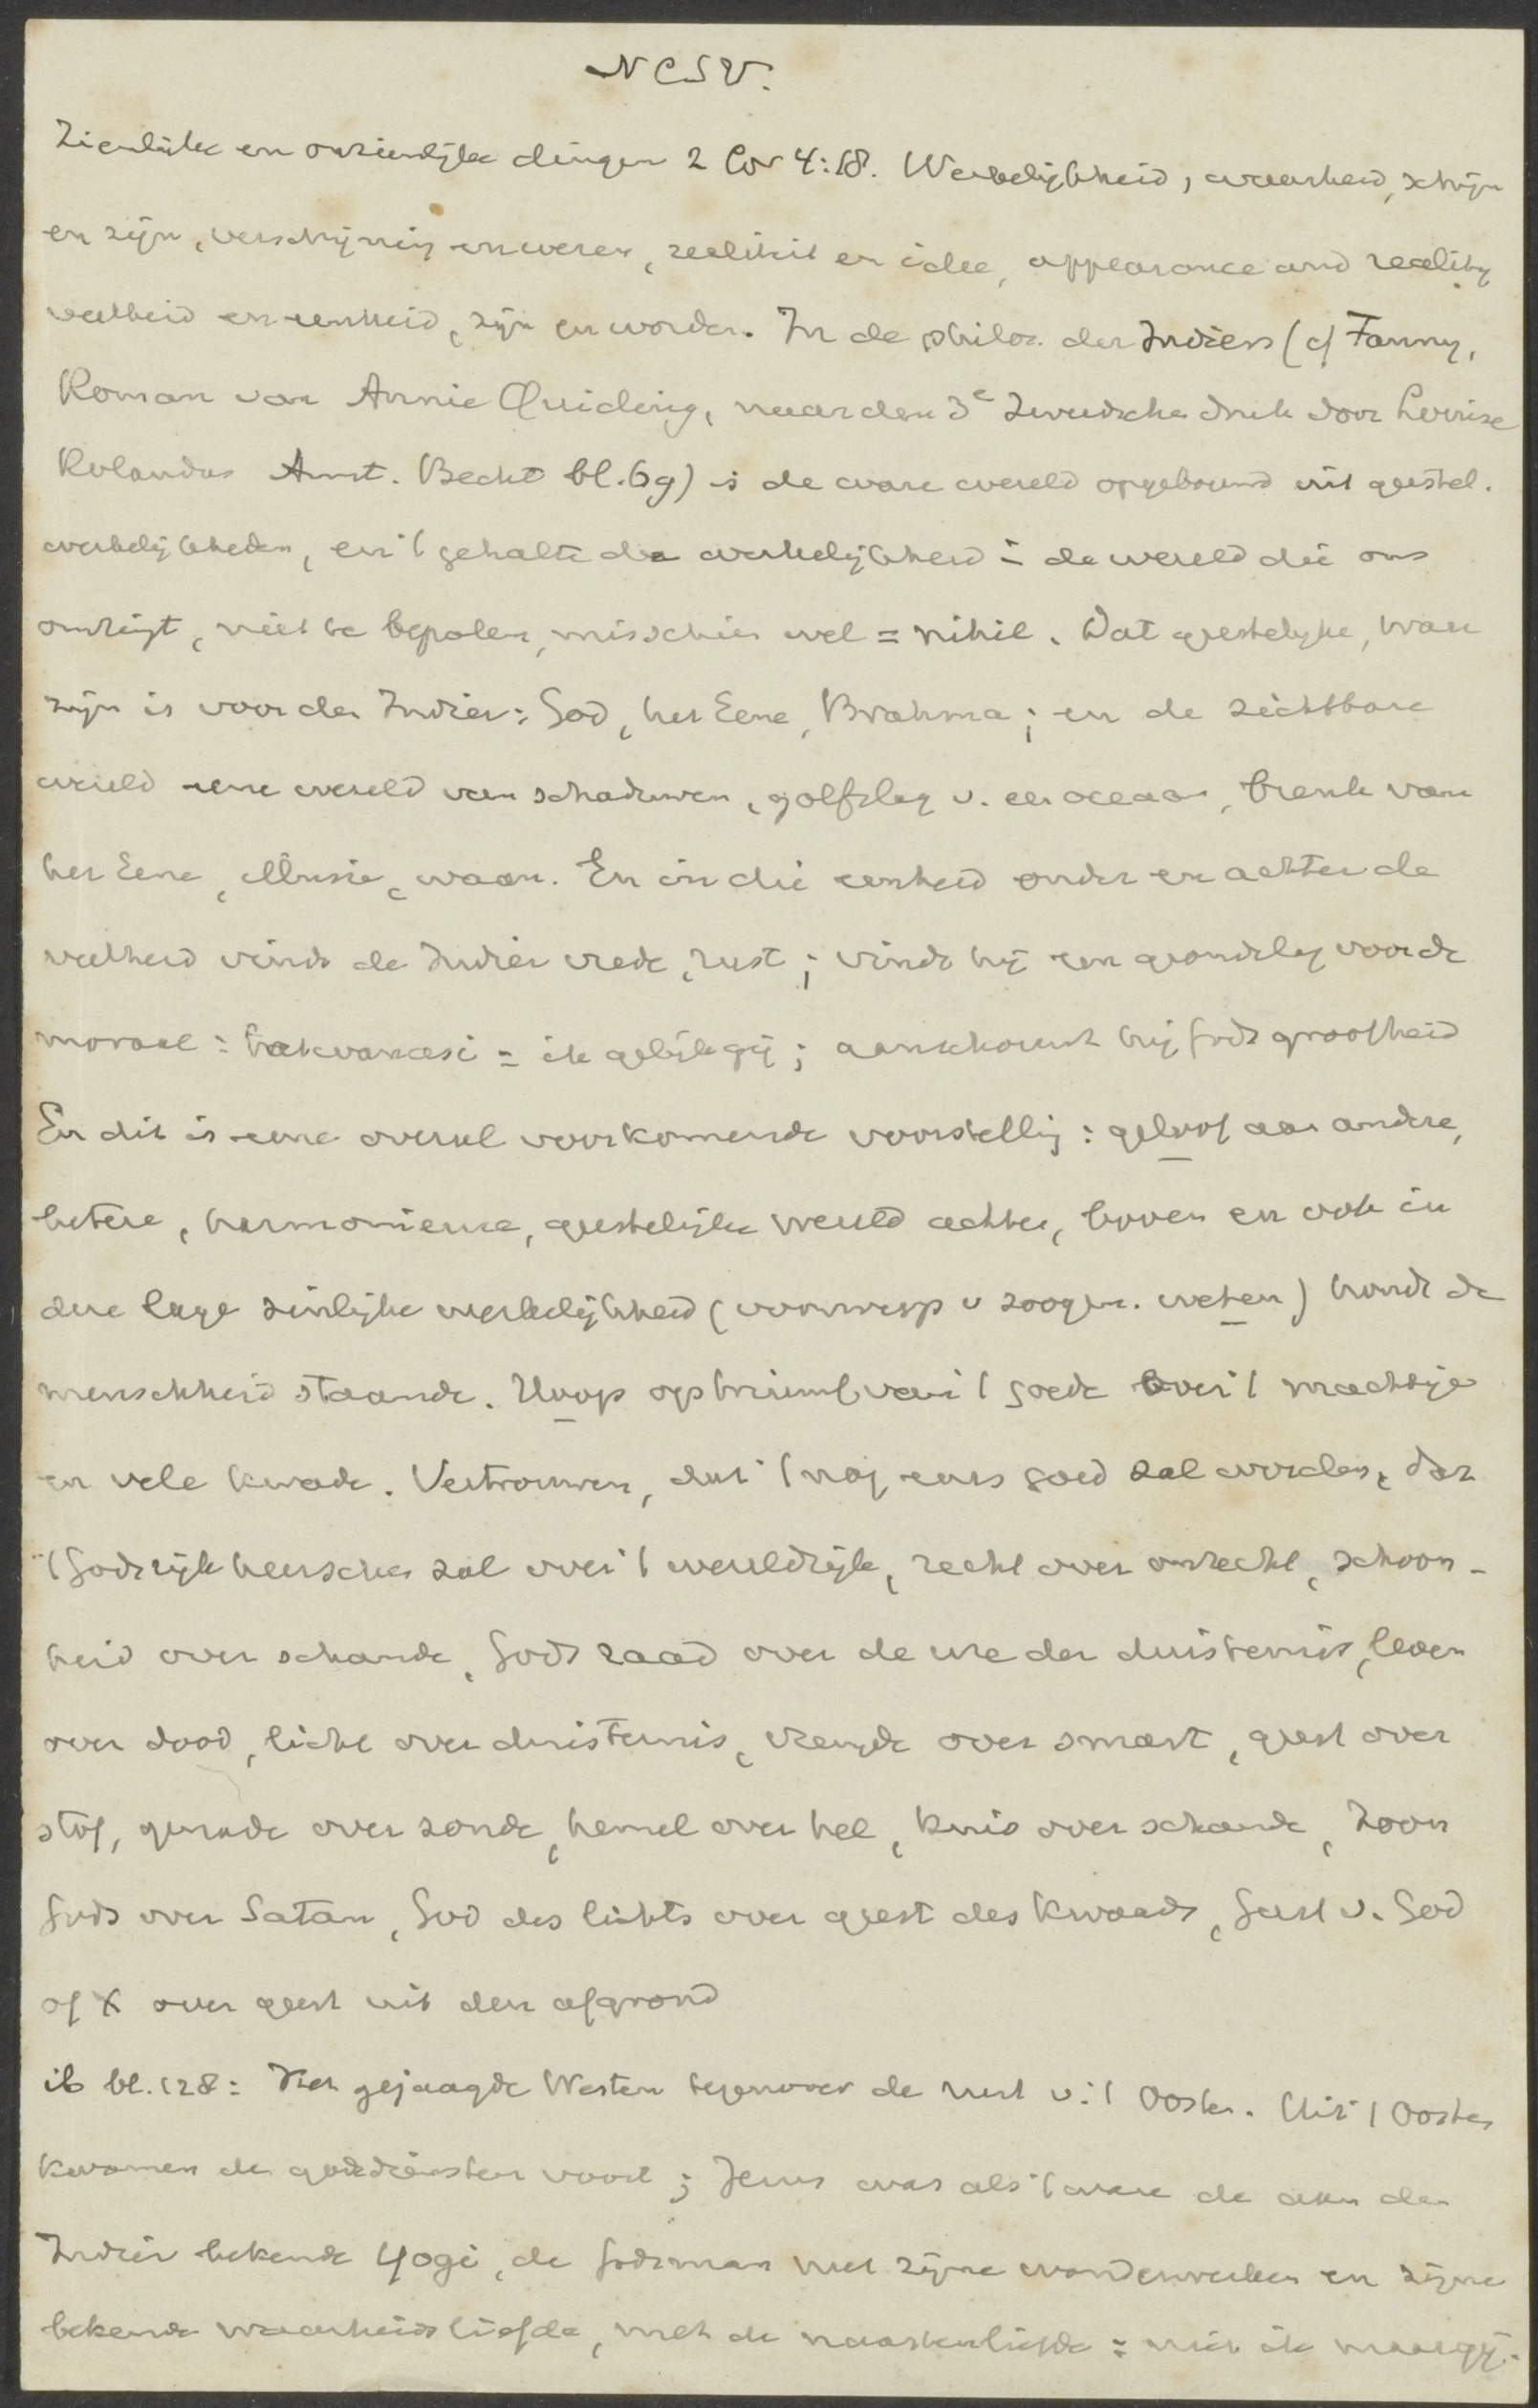 NCSV.
Zienlijke en onzienlijke dingen 2 Cor 4:18. Werkelijkheid, waarheid, schijn
en zijn, verschijning en wezen, realiteit en idee, appearance and reality
veelheid en eenheid, zijn en worden. In de philos. der Indiërs (cf Fanny,
Roman van Annie Quiding, naar den 3e Zweedschen druk door Louise
Rolandus Amst. Becht bl. 69) is de ware wereld opgebouwd uit geestel.
werkelijkheden, en 't gehalte der werkelijkheid in de wereld die ons
omringt, niet te bepalen, misschien wel = nihil. Dat geestelijke, ware
zijn is voor den Indiër: God, het Eene, Brahma; en de zichtbare
wereld eene wereld van schaduwen, golfslag v. een oceaan, breuk van
het Eene, illusie, waan. En in die eenheid onder en achter de
veelheid vindt de Indiër vrede, rust; vindt hij een grondslag voor de
moraal: tatwamasi = ik gelijk gij; aanschouwt hij Gods grootheid
En dit is eene overal voorkomende voorstelling: geloof aan andere,
betere, harmonieuse, geestelijke wereld achter, boven en ook in
deze lage zinlijke werkelijkheid (voorwerp v zoogen. weten) houdt de
menschheid staande. Hoop op triumf van 't goede over 't machtige
en vele kwade. Vertrouwen, dat 't nog eens goed zal worden, dat
't Godsrijk heerschen zal over 't wereldrijk, recht over onrecht, schoon-
heid over schande, Gods raad over de ure der duisternis, leven
over dood, licht over duisternis, vreugde over smart, geest over
stof, genade over zonde, hemel over hel, kruis over schande, Zoon
Gods over Satan, God des lichts over geest des kwaads, Geest v. God
of X over geest uit den afgrond
ib bl. 128: Het gejaagde Westen tegenover de rust v. 't Oosten. Uit 't Oosten
kwamen de godsdiensten voort; Jezus was als 't ware de aan den
Indiër bekende Yogi, de Godsman met zijne wonderwerken en zijne
bekende waarheidsliefde, met de naastenliefde: niet ik maar gij.